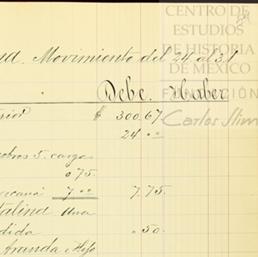 CENTRO DE
ESTUDIOS
DE HISTORIA
DE MÉXICO
FUNDACIÓN
Carlos Slim
Movimiento del 24 al 31
Debe. Haber
$ 300.67
24 "
5. cargas
" 75.
7 " 7.75.
Una
" 50.
Aranda é Hijo